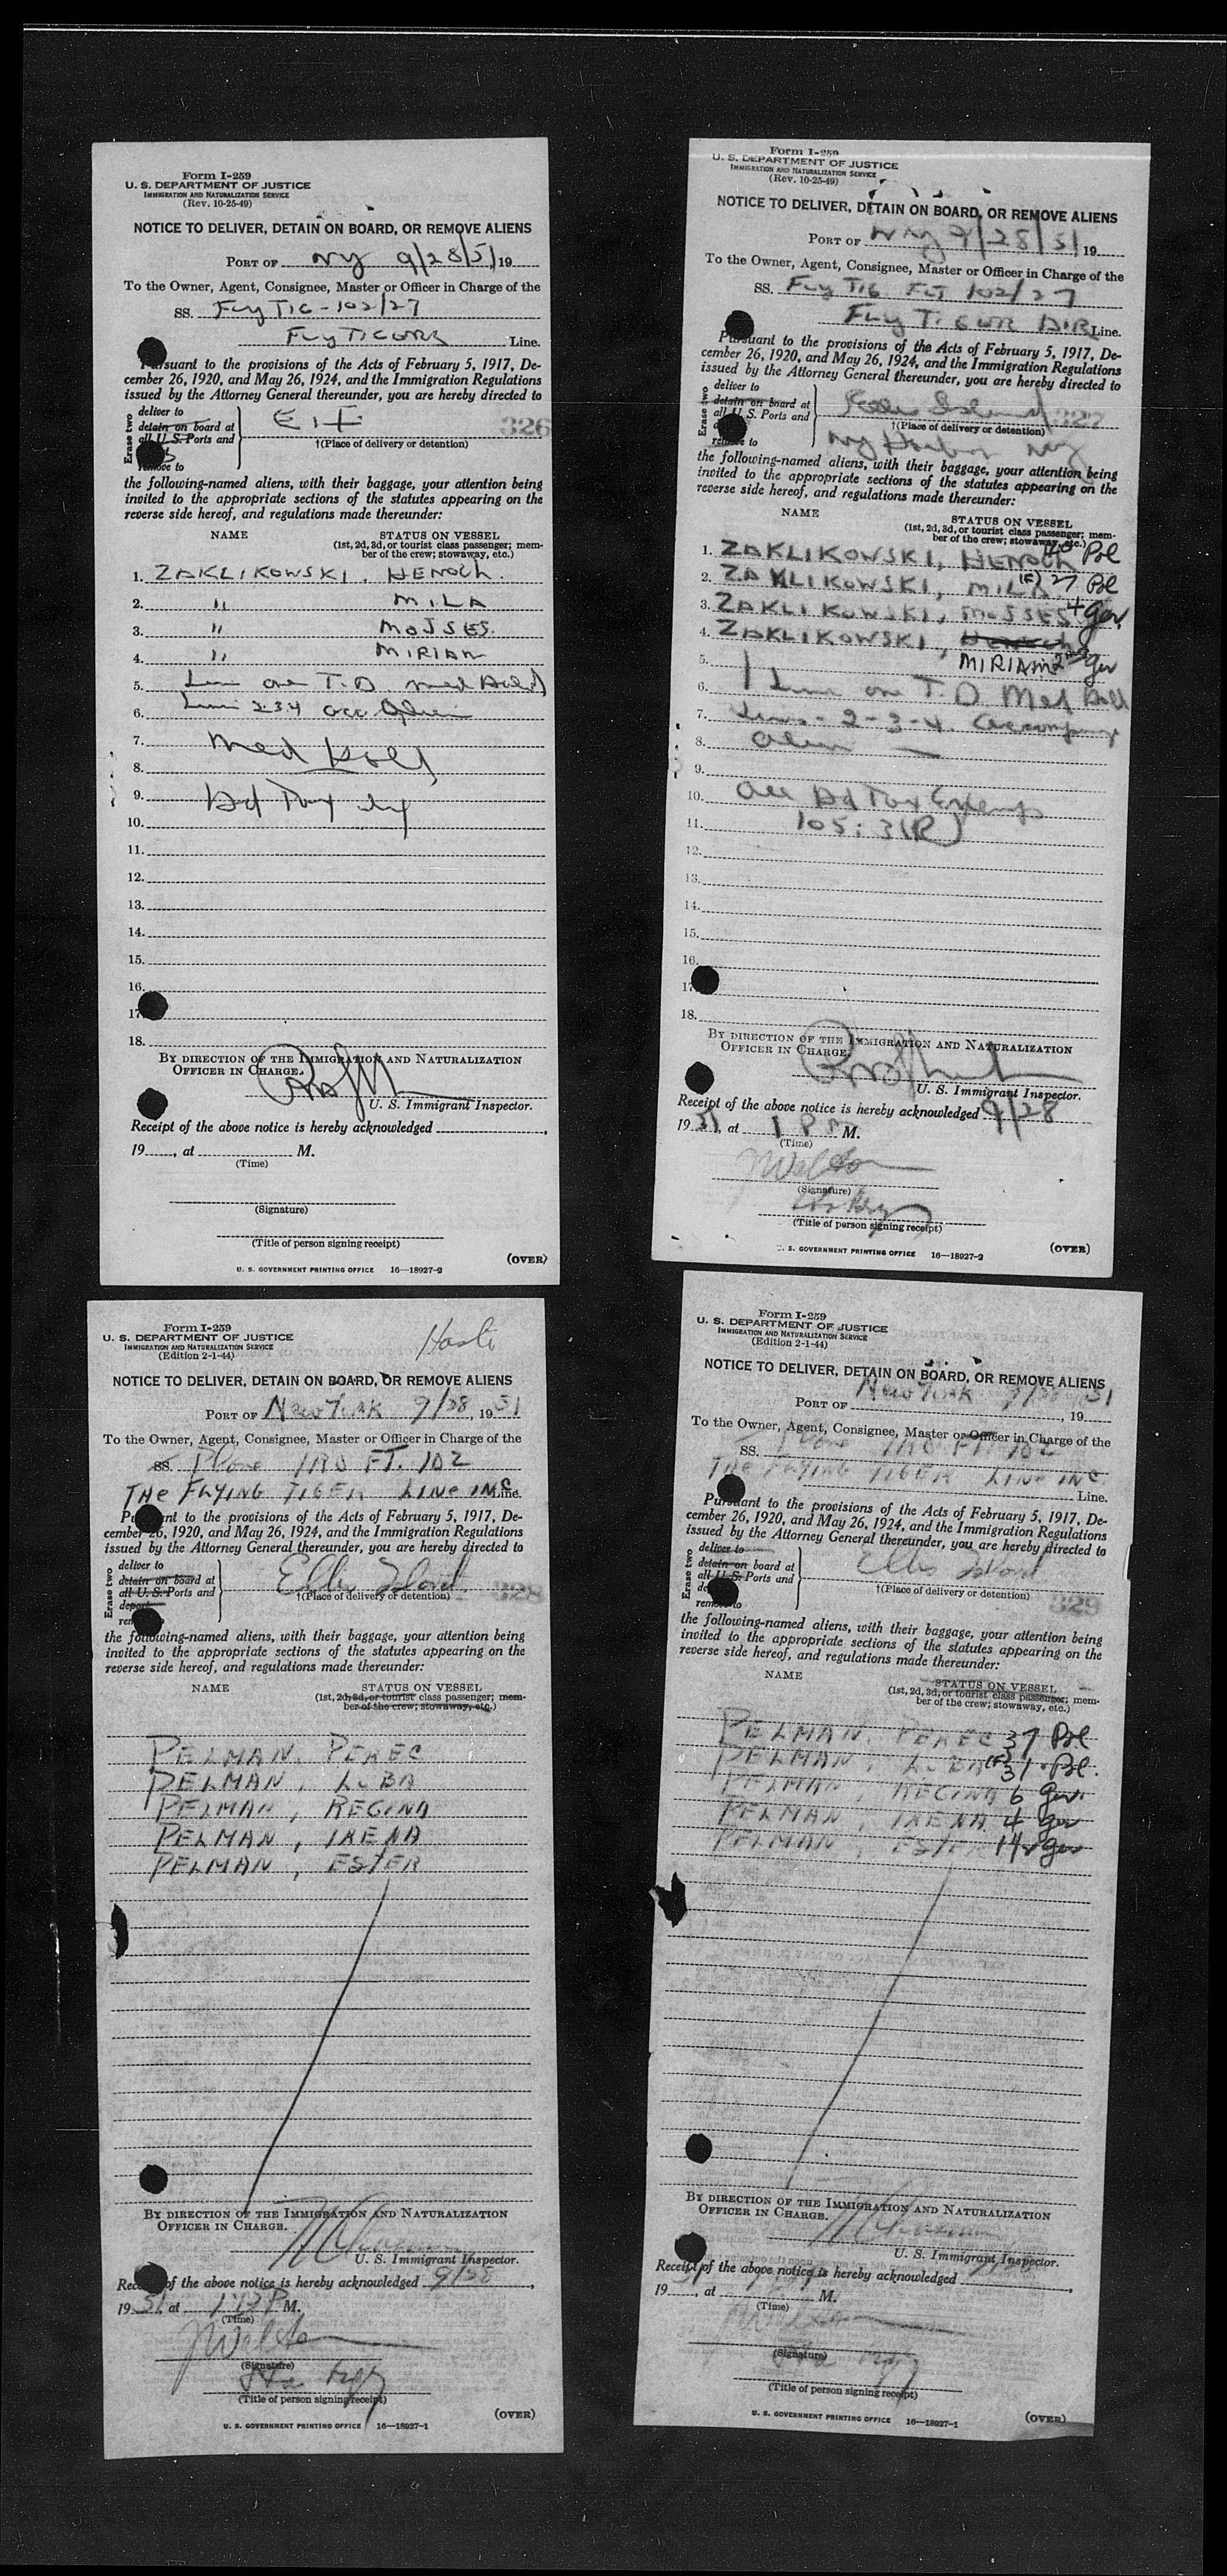 Form I-259
U. S. DEPARTMENT OF JUSTICE
IMMIGRATION AND NATURALIZATION SERVICE
(Rev. 10-25-49)
NOTICE TO DELIVER, DETAIN ON BOARD, OR REMOVE ALIENS
PORT OF NY 9/28/51, 19
To the Owner, Agent, Consignee, Master or Officer in Charge of the
SS. FLY TIG - 102/27
FLY TIGURR Line.
Pursuant to the provisions of the Acts of February 5, 1917, De-
cember 26, 1920, and May 26, 1924, and the Immigration Regulations
issued by the Attorney General thereunder, you are hereby directed to
Erase two
deliver to
detain on board at
all U. S. Ports and
remove to
E. I
326
†(Place of delivery or detention)
the following-named aliens, with their baggage, your attention being
invited to the appropriate sections of the statutes appearing on the
reverse side hereof, and regulations made thereunder:
NAME STATUS ON VESSEL
(1st, 2d, 3d, or tourist class passenger; mem-
ber of the crew; stowaway, etc.)
1. ZAKLIKOWSKI, HENOCH.
2. " MILA
3. " MOJSES.
4. " MIRIAM
5. Line one T.D Med Hold
6. Line 2-3-4 acc Alien
7. Med Hold
8.
9. Hd Tax
10.
11.
12.
13.
14.
15.
16.
17.
18.
BY DIRECTION OF THE IMMIGRATION AND NATURALIZATION
OFFICER IN CHARGE.
U. S. Immigrant Inspector.
Receipt of the above notice is hereby acknowledged ,
19 , at M.
(Time)
(Signature)
(Title of person signing receipt)
(OVER)
U. S. GOVERNMENT PRINTING OFFICE 16—18927-2
Form I-259
U. S. DEPARTMENT OF JUSTICE
IMMIGRATION AND NATURALIZATION SERVICE
(Rev. 10-25-49)
NOTICE TO DELIVER, DETAIN ON BOARD, OR REMOVE ALIENS
PORT OF NY 9/28/51 19
To the Owner, Agent, Consignee, Master or Officer in Charge of the
SS. FLY TIG FLT 102/27
FLY TIGUR AIR Line.
Pursuant to the provisions of the Acts of February 5, 1917, De-
cember 26, 1920, and May 26, 1924, and the Immigration Regulations
issued by the Attorney General thereunder, you are hereby directed to
Erase two
deliver to
detain on board at
all U. S. Ports and
remove to
Ellis Island
327
†(Place of delivery or detention)
NY Harbor NY
the following-named aliens, with their baggage, your attention being
invited to the appropriate sections of the statutes appearing on the
reverse side hereof, and regulations made thereunder:
NAME STATUS ON VESSEL
(1st, 2d, 3d, or tourist class passenger; mem-
ber of the crew; stowaway, etc.)
1. ZAKLIKOWSKI, HENOCH Pol
2. ZAKLIKOWSKI, MILA (F) 27 Pol
3. ZAKLIKOWSKI, MOJSES 4 Ger
4. ZAKLIKOWSKI, HENOCH
5. MIRIAM Ger
6. Line one T.D Med Hold
7. Lines - 2-3-4. accompany
8. alien
9.
10. all Hd Tax Exemp
11. 105: 3(R)
12.
13.
14.
15.
16.
17.
18.
BY DIRECTION OF THE IMMIGRATION AND NATURALIZATION
OFFICER IN CHARGE.
U. S. Immigrant Inspector.
Receipt of the above notice is hereby acknowledged 9/28
1951, at 1 P M.
(Time)
JWalton
(Signature)
(Title of person signing receipt)
U. S. GOVERNMENT PRINTING OFFICE 16—18927-2 (OVER)
Form I-259
U. S. DEPARTMENT OF JUSTICE
IMMIGRATION AND NATURALIZATION SERVICE
(Edition 2-1-44)
NOTICE TO DELIVER, DETAIN ON BOARD, OR REMOVE ALIENS
PORT OF New York 9/28, 1951
To the Owner, Agent, Consignee, Master or Officer in Charge of the
SS. Plane TRO FT. 102
THE FLYING TIGER LINE INC Line.
Pursuant to the provisions of the Acts of February 5, 1917, De-
cember 26, 1920, and May 26, 1924, and the Immigration Regulations
issued by the Attorney General thereunder, you are hereby directed to
Erase two
deliver to
detain on board at
all U. S. Ports and
depart
remove to
Ellis Island
328
†(Place of delivery or detention)
the following-named aliens, with their baggage, your attention being
invited to the appropriate sections of the statutes appearing on the
reverse side hereof, and regulations made thereunder:
NAME STATUS ON VESSEL
(1st, 2d, 3d, or tourist class passenger; mem-
ber of the crew; stowaway, etc.)
PELMAN, PEREC
PELMAN, LUBA
PELMAN, REGINA
PELMAN, IRENA
PELMAN, ESTER
BY DIRECTION OF THE IMMIGRATION AND NATURALIZATION
OFFICER IN CHARGE.
U. S. Immigrant Inspector.
Receipt of the above notice is hereby acknowledged 9/28,
1951, at P M.
(Time)
JWalton
(Signature)
(Title of person signing receipt)
(OVER)
U. S. GOVERNMENT PRINTING OFFICE 16—18927-1
Form I-259
U. S. DEPARTMENT OF JUSTICE
IMMIGRATION AND NATURALIZATION SERVICE
(Edition 2-1-44)
NOTICE TO DELIVER, DETAIN ON BOARD, OR REMOVE ALIENS
PORT OF New York 9/28, 19 51
To the Owner, Agent, Consignee, Master or Officer in Charge of the
SS. Plane TRO FT 102
THE FLYING TIGER LINE INC
Line.
Pursuant to the provisions of the Acts of February 5, 1917, De-
cember 26, 1920, and May 26, 1924, and the Immigration Regulations
issued by the Attorney General thereunder, you are hereby directed to
Erase two
deliver to
detain on board at
all U. S. Ports and
remove to
Ellis Island
†(Place of delivery or detention)
329
the following-named aliens, with their baggage, your attention being
invited to the appropriate sections of the statutes appearing on the
reverse side hereof, and regulations made thereunder:
NAME STATUS ON VESSEL
(1st, 2d, 3d, or tourist class passenger; mem-
ber of the crew; stowaway, etc.)
PELMAN, PEREC 37 Pol
PELMAN, LUBA (F) 31 Pol.
PELMAN, REGINA 6 Ger.
PELMAN, IRENA 4 Ger
PELMAN, ESTER Ger
BY DIRECTION OF THE IMMIGRATION AND NATURALIZATION
OFFICER IN CHARGE.
U. S. Immigrant Inspector.
Receipt of the above notice is hereby acknowledged ,
19 , at M.
(Time)
(Signature)
(Title of person signing receipt)
U. S. GOVERNMENT PRINTING OFFICE 16—18927-1 (OVER)